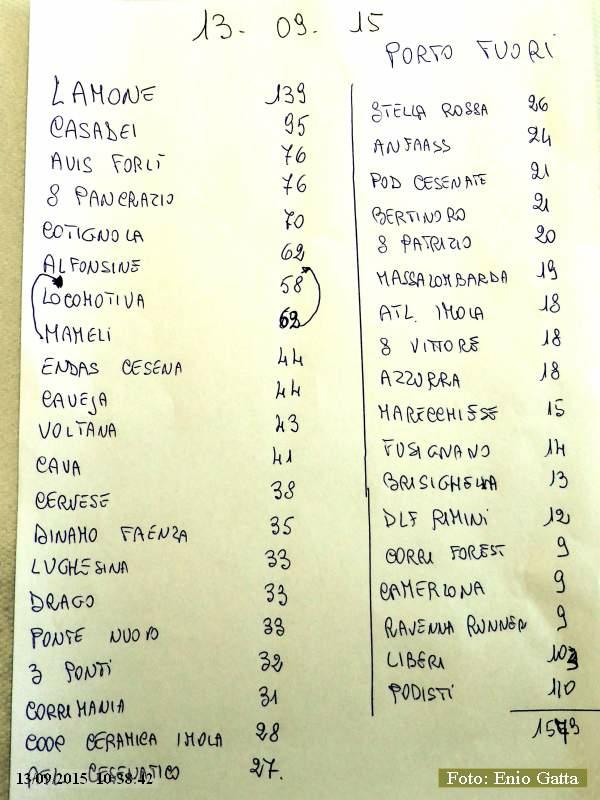 13. 09. 15
PORTO FUORI
LAMONE 139
CASADEI 95
AVIS FORLÌ 76
S PANCRAZIO 76
COTIGNOLA 70
ALFONSINE 62
LOCOMOTIVA 58
MAMELI 62
ENDAS CESENA 44
CAVEJA 44
VOLTANA 43
CAVA 41
CERVESE 38
DINAMO FAENZA 35
LUGHESINA 33
DRAGO 33
PONTE NUOVO 33
3 PONTI 32
CORRIMANIA 31
COOP CERAMICA IMOLA 28
ATL CESENATICO 27.
STELLA ROSSA 26
ANFFAASS 24
POD CESENATE 21
BERTINORO 21
S PATRIZIO 20
MASSALOMBARDA 19
ATL. IMOLA 18
S VITTORE 18
AZZURRA 18
MARECCHIESE 15
FUSIGNANO 14
BRISIGHELLA 13
DLF RIMINI 12
CORRI FOREST 9
CAMERLONA 9
RAVENNA RUNNER 9
LIBERI
PODISTI 110
13/09/2015 10:38:42
Foto: Enio Gatta